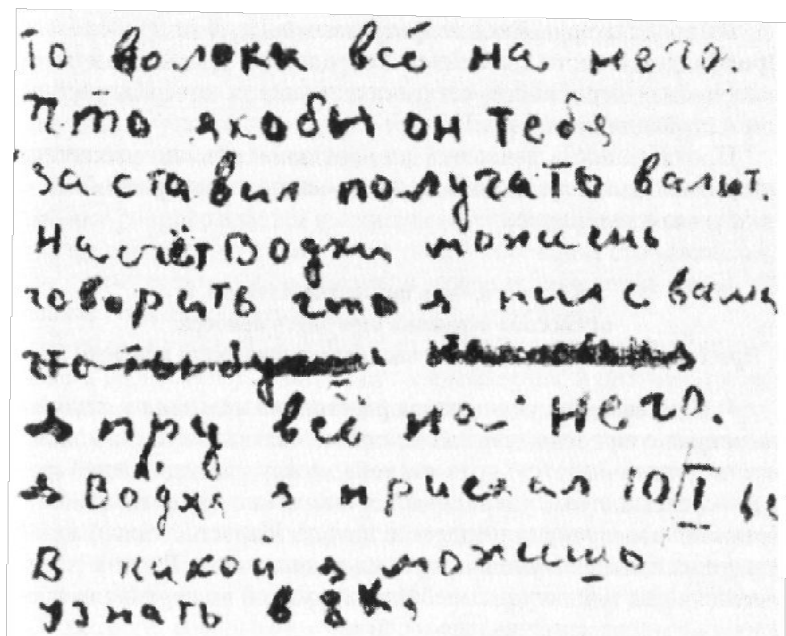 то волоки всё на него.
что якобы он тебя
заставил получать валют.
насчёт Водки можешь
говорить что я пил с вами
что
→ пру всё на него.
→ Водку я приехал
В какой я можешь
узнать в дк,